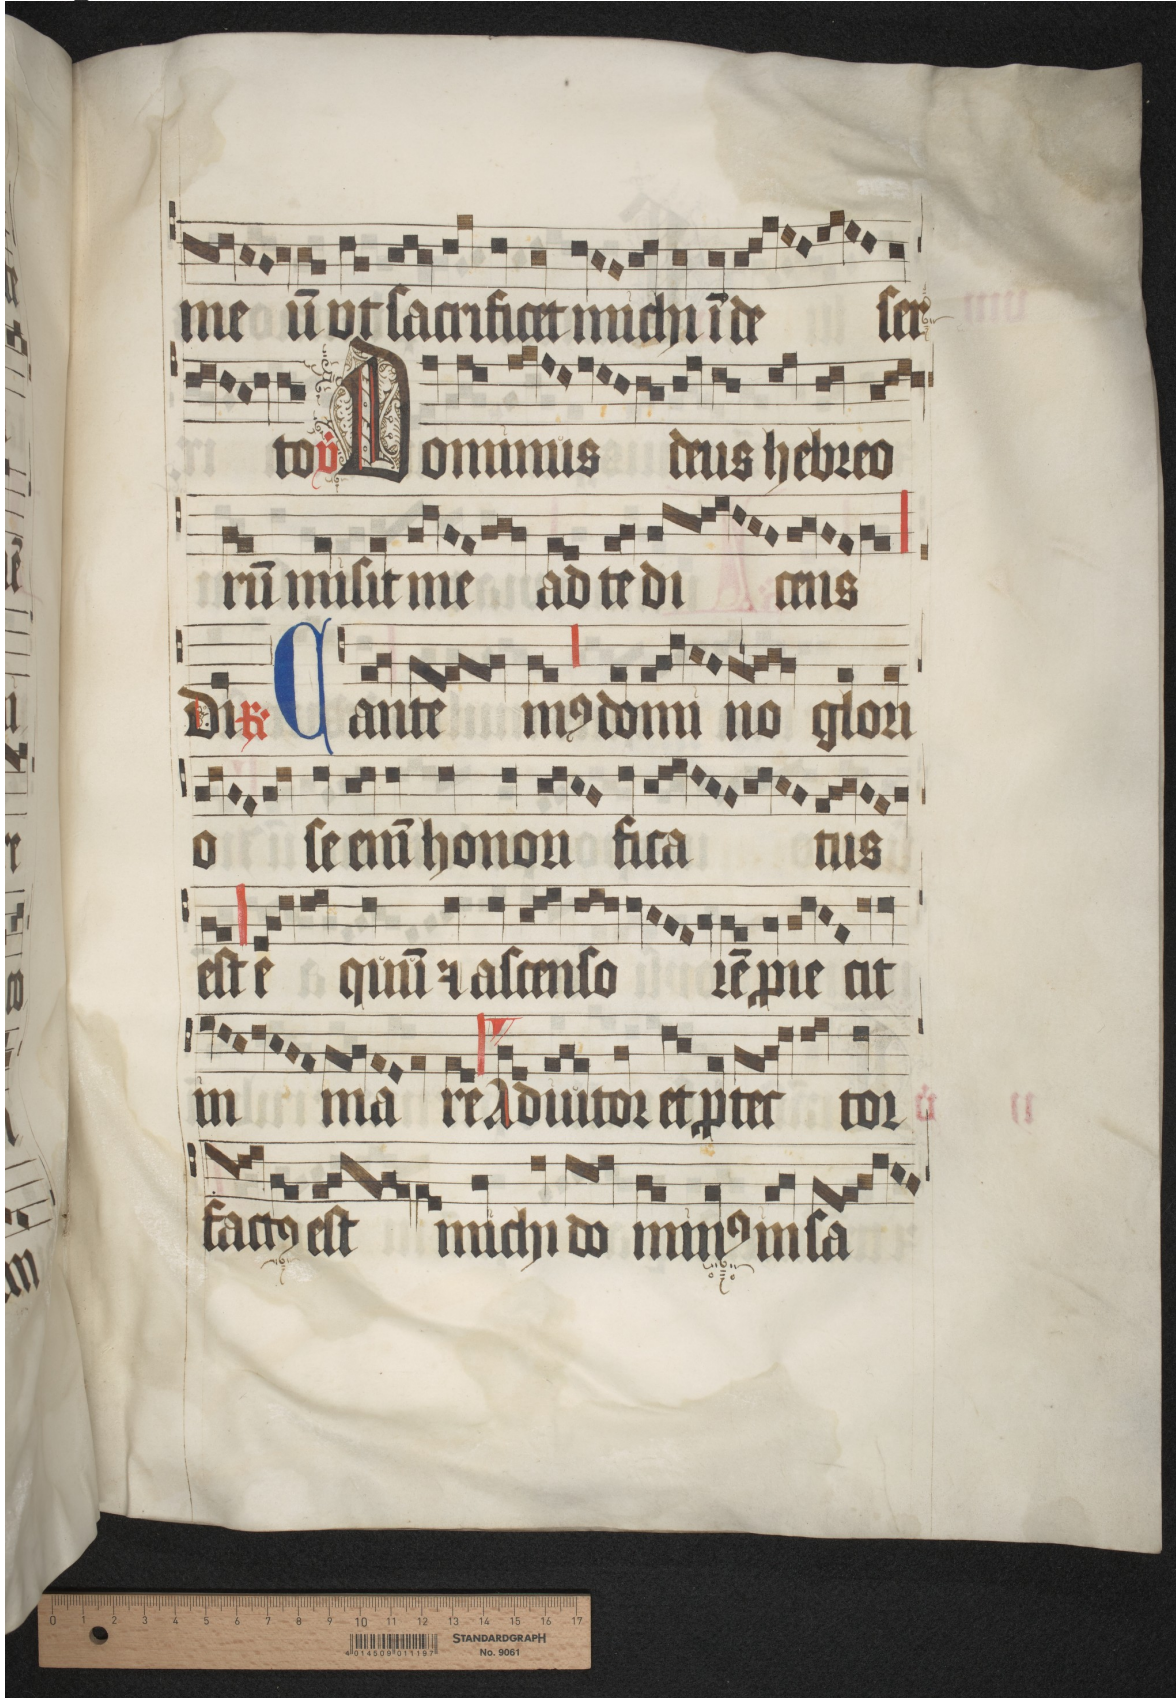 me ū vt sacrificet michi ī de ser
to v̇ Dominus deus hebreo
rū misit me ad te di cens
Di R Cante mꝰ domi no glori
o se enī honori fica tus
est e quū ⁊ ascenso rē ꝓie cit
in ma re Adiutor et ꝓtec tor
factꝰ est michi do minꝰ in sa
0 1 2 3 4 5 6 7 8 9 10 11 12 13 14 15 16 17
4 014509 011197
STANDARDGRAPH
No. 9061